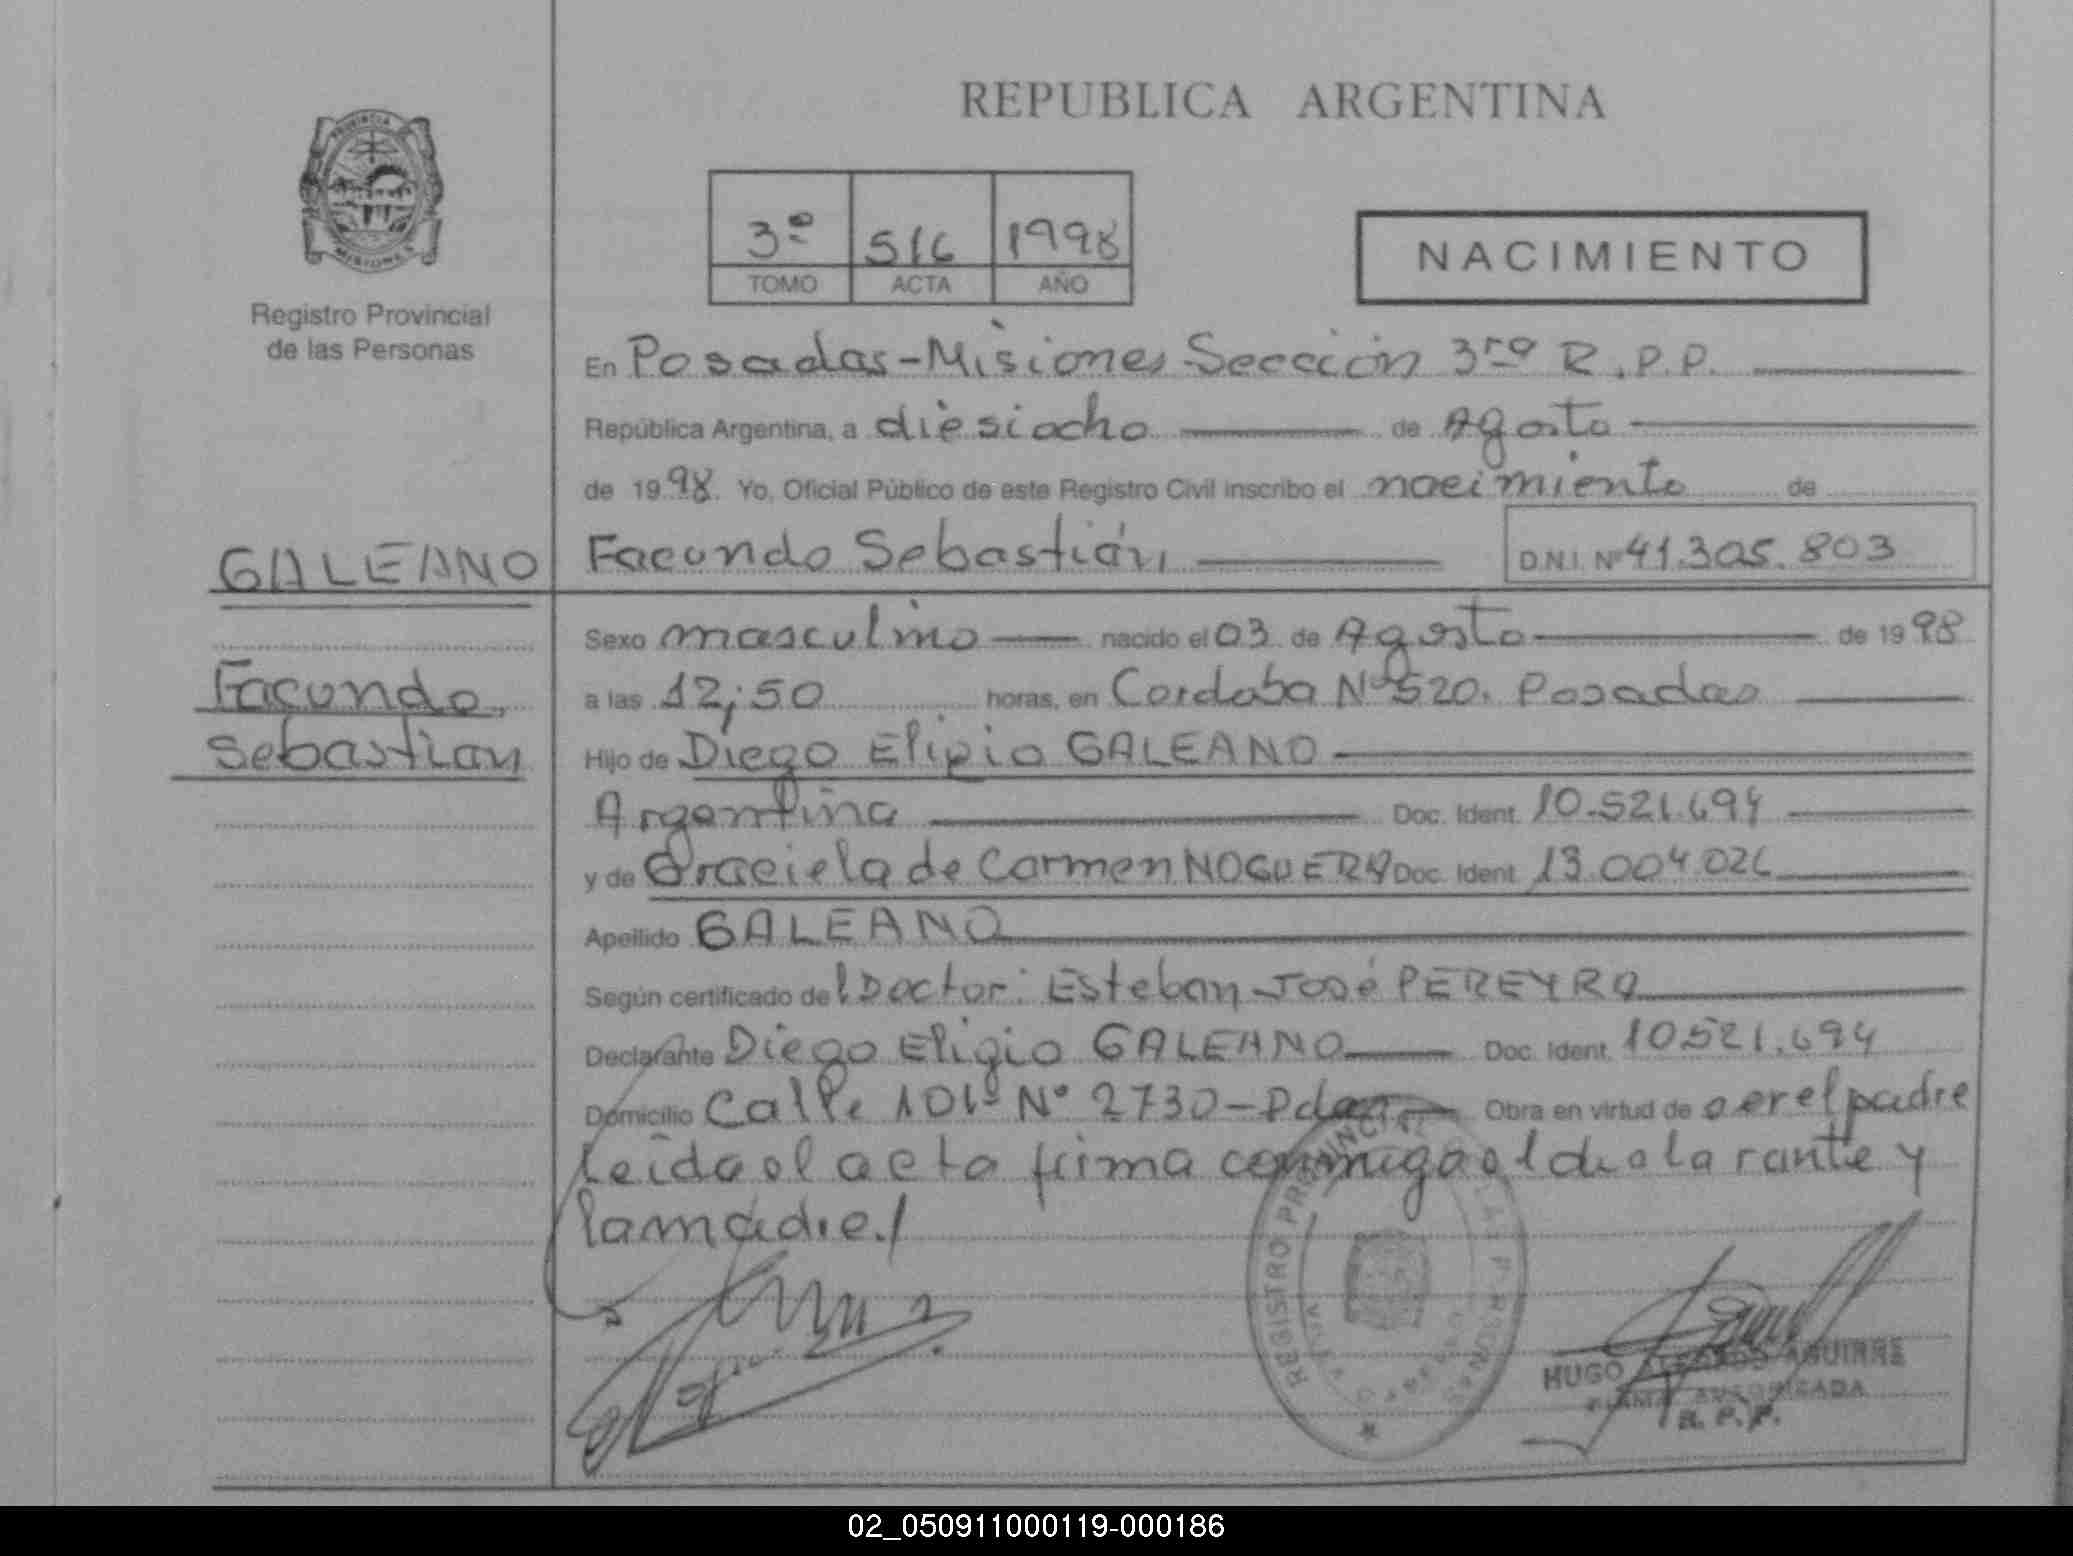 REPUBLICA ARGENTINA
PROVINCIA
MISIONES
Registro Provincial
de las Personas
3º 516 1998
TOMO ACTA AÑO
NACIMIENTO
En Posadas-Misiones Sección 3ra R.P.P.
República Argentina, a diesiocho de Agosto
de 1998. Yo, Oficial Público de este Registro Civil inscribo el nacimiento de
GALEANO
Facundo Sebastián
D.N.I. Nº 41.305.803
Facundo
Sebastian
Sexo masculino nacido el 03 de Agosto de 1998
a las 12;50 horas, en Cordoba Nº520. Posadas
Hijo de Diego Eligio GALEANO
Argentina Doc. Ident. 10.521.694
y de Graciela de Carmen NOGUERA Doc. Ident. 13.004.026
Apellido GALEANO
Según certificado del Doctor: Esteban José PEREYRA
Declarante Diego Eligio GALEANO Doc. Ident. 10.521.694
Domicilio Calle Nº 2730-Pdas Obra en virtud de ser el padre
Leida el acta firma conmigo el y
la madre./
REGISTRO PROVINCIAL DE LAS PERSONAS
HUGO AGUIRRE
FIRMA AUTORIZADA
R. P. P.
02_050911000119-000186